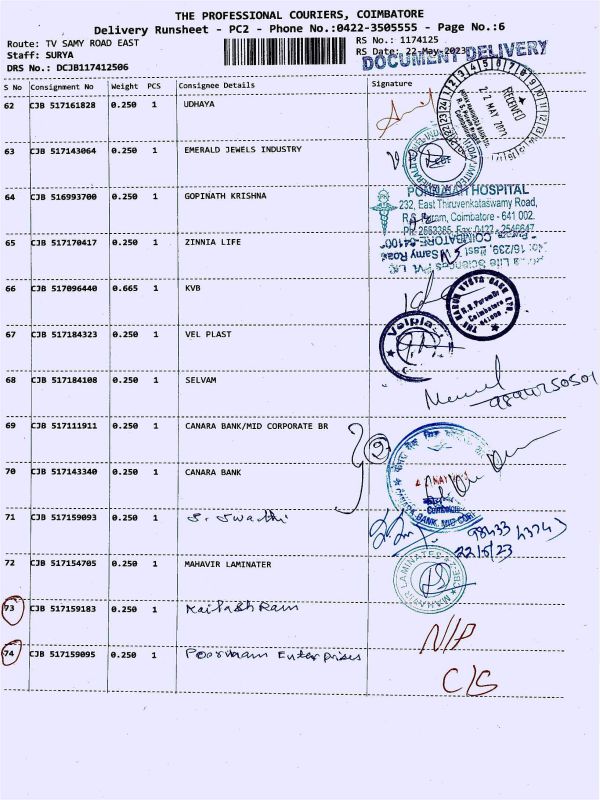 THE PROFESSIONAL COURIERS, COIMBATORE
Delivery Runsheet - PC2 - Phone No.:0422-3505555 - Page No.:6
Route: TV SAMY ROAD EAST
RS No.: 1174125
Staff: SURYA
RS Date: 22-May-2023
DRS No.: DCJB117412506
DOCUMENT DELIVERY
S No Consignment No Weight PCS Consignee Details Signature
62 CJB 517161828 0.250 1 UDHAYA
RECEIVED
22 MAY 2023
63 CJB 517143064 0.250 1 EMERALD JEWELS INDUSTRY
64 CJB 516993700 0.250 1 GOPINATH KRISHNA
HOSPITAL
232, East Thiruvenkataswamy Road,
R.S.Puram, Coimbatore - 641 002.
65 CJB 517170417 0.250 1 ZINNIA LIFE
66 CJB 517096440 0.665 1 KVB
THE KARUR VYSYA BANK LTD.
R.S.Puram Br
Coimbatore
67 CJB 517184323 0.250 1 VEL PLAST
Velplast
68 CJB 517184108 0.250 1 SELVAM
69 CJB 517111911 0.250 1 CANARA BANK/MID CORPORATE BR
70 CJB 517143340 0.250 1 CANARA BANK
CANARA BANK, MID CORP
71 CJB 517159093 0.250 1 S. Swathi
22/5/23
72 CJB 517154705 0.250 1 MAHAVIR LAMINATER
MAHAVIR LAMINATER CBE-2
73 CJB 517159183 0.250 1 Kailash Ram
N/P
74 CJB 517159095 0.250 1 Poornam Enterprises
C/S